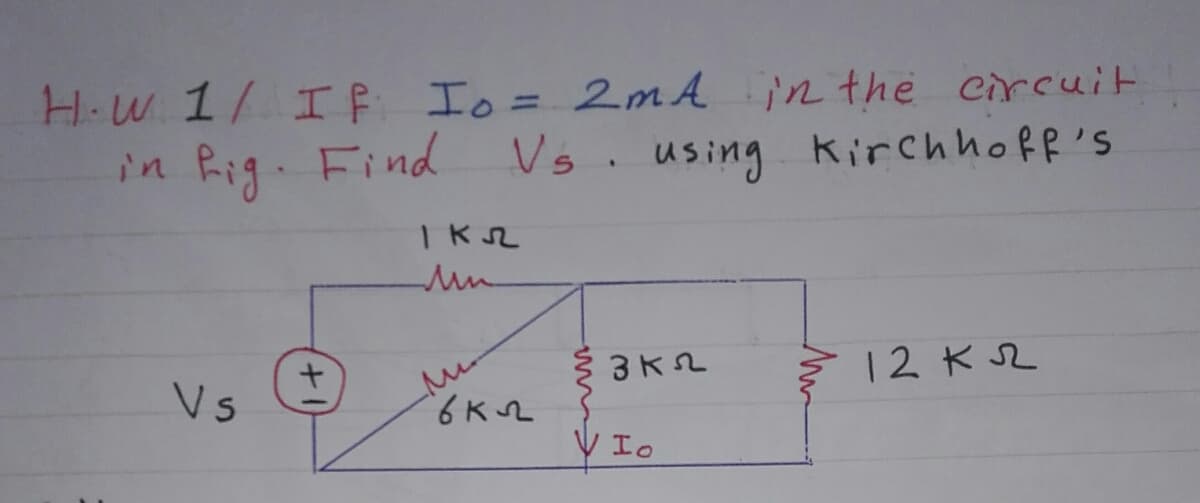 H.W 1/ If Io = 2mA in the circuit
in fig. Find Vs. using Kirchhoff's
1 KΩ
Vs
+
-
6KΩ
3KΩ
Io
12 KΩ